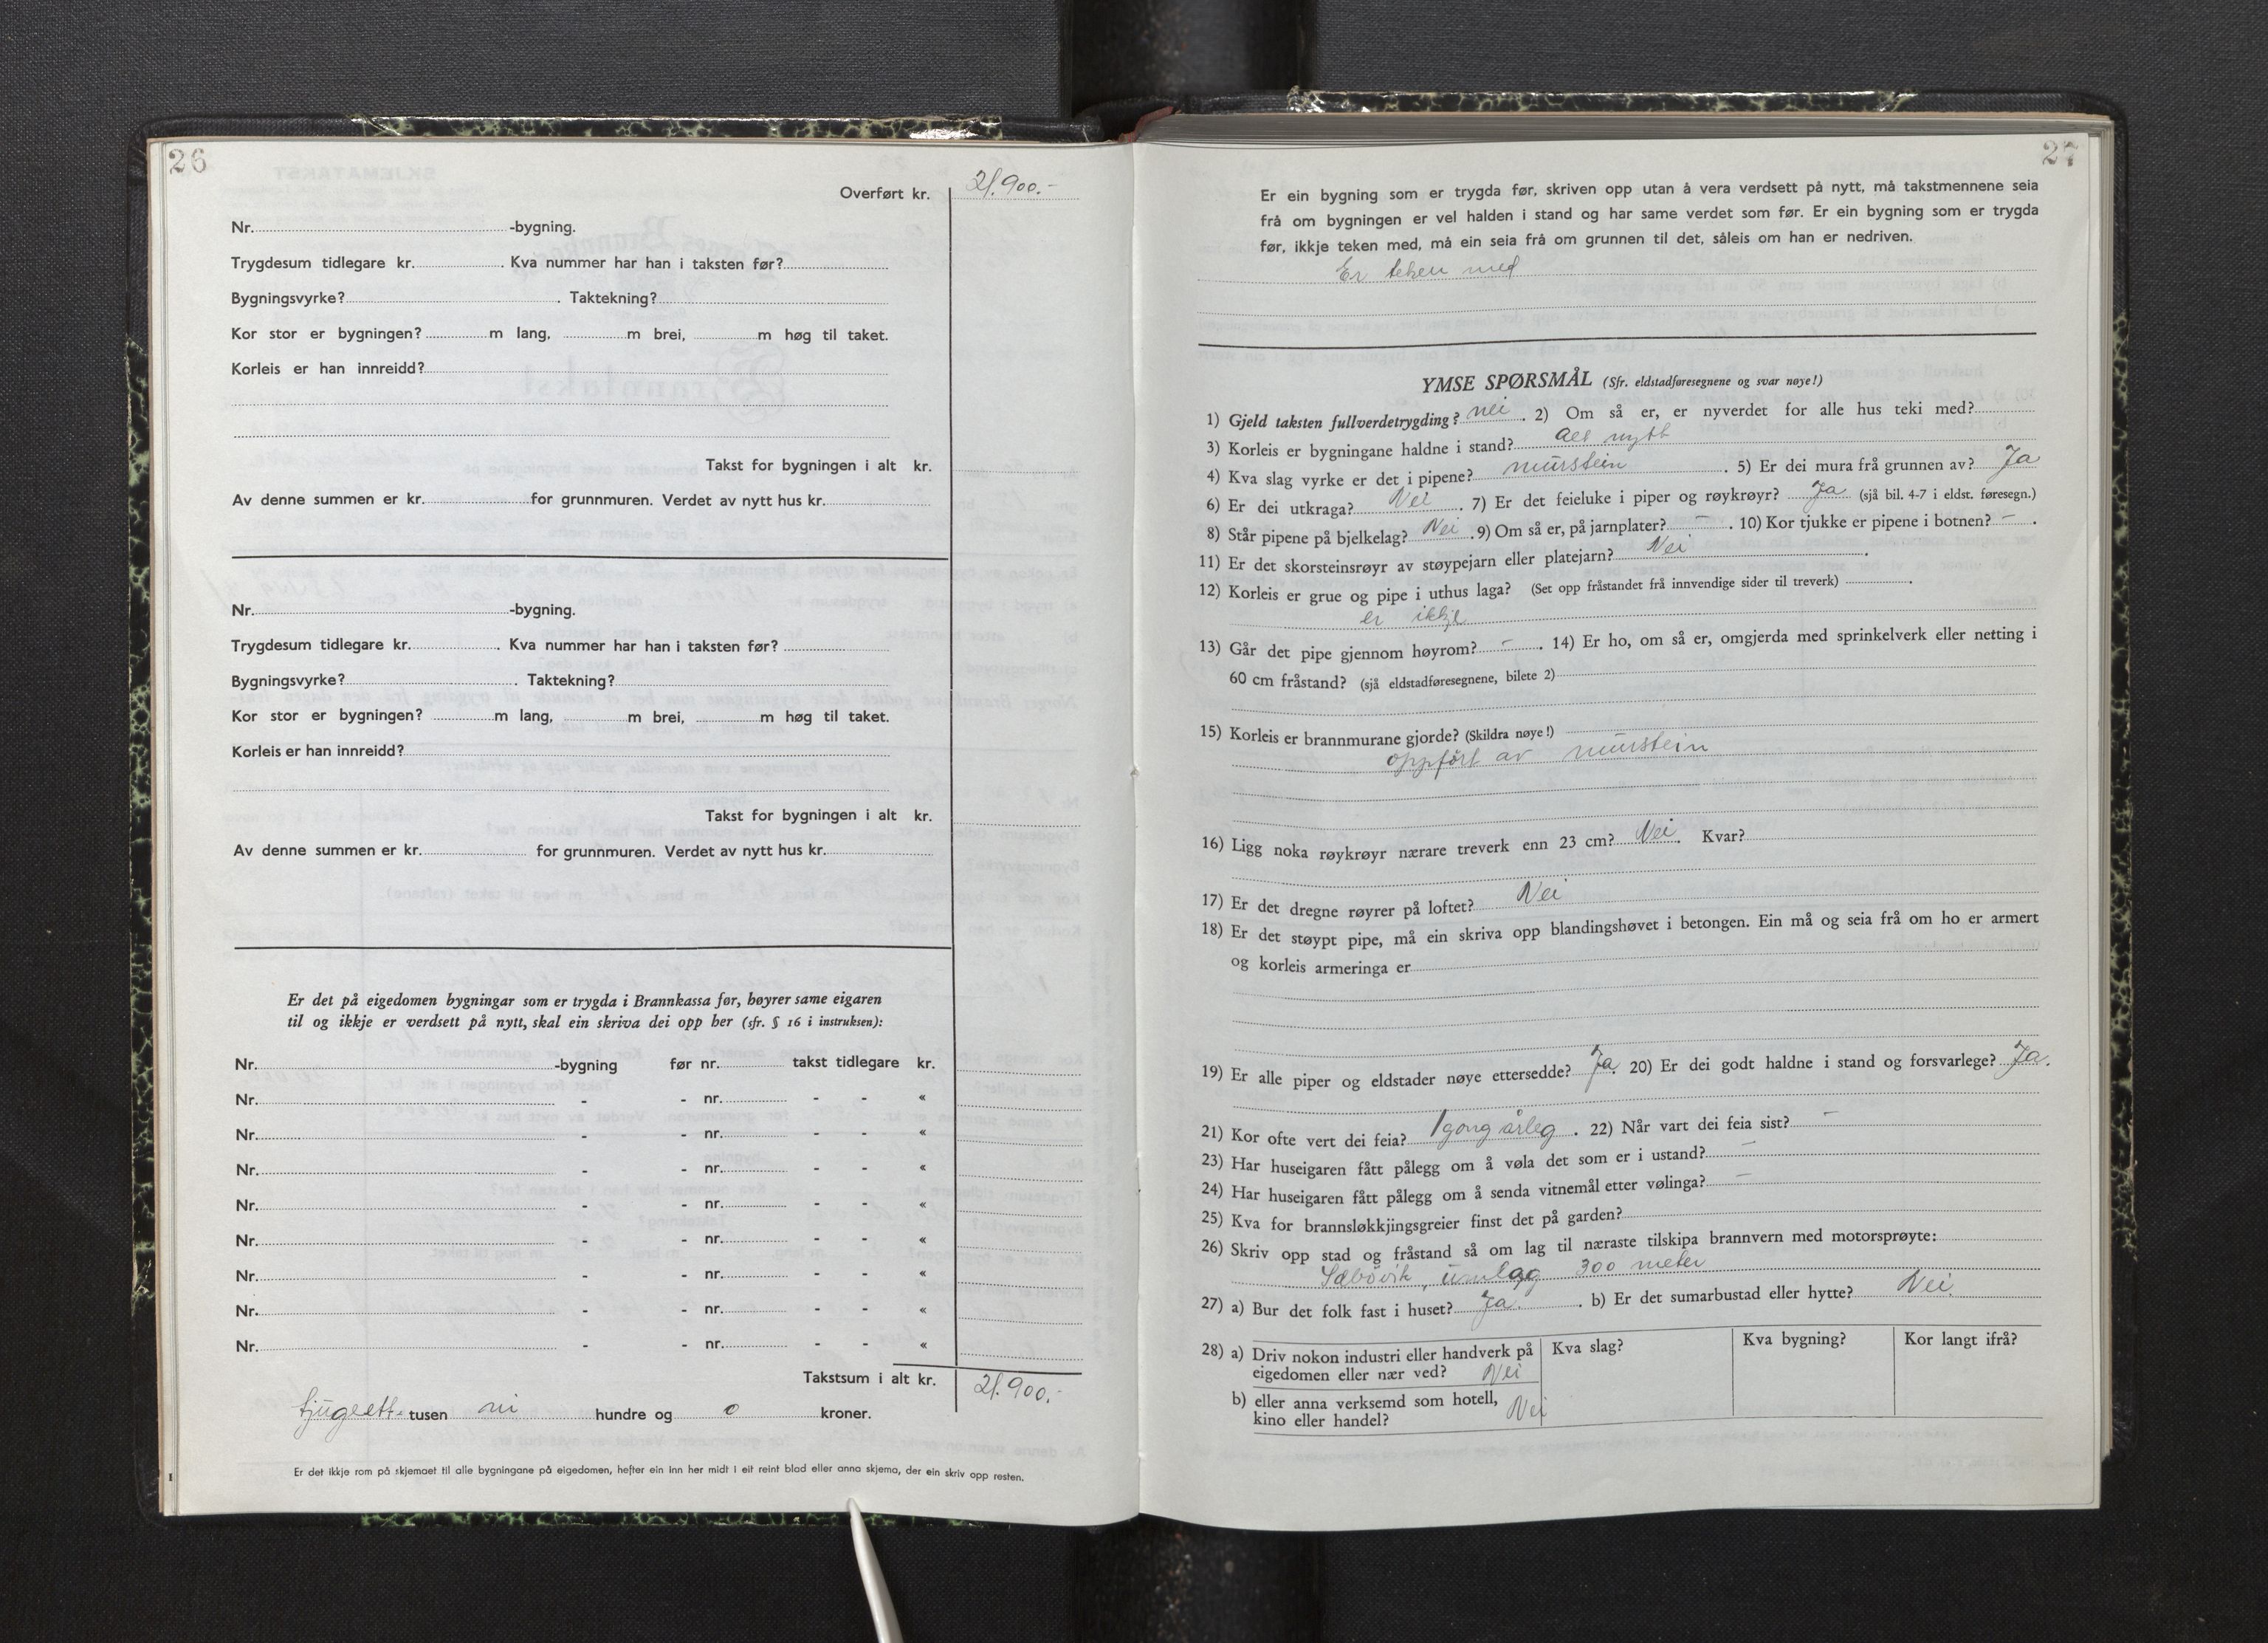 26
Overført kr. 21.900.-
Nr. -bygning.
Trygdesum tidlegare kr. . Kva nummer har han i taksten før?
Bygningsvyrke? . Taktekning?
Kor stor er bygningen? m lang, m brei, m høg til taket.
Korleis er han innreidd?
Takst for bygningen i alt kr.
Av denne summen er kr. for grunnmuren. Verdet av nytt hus kr.
Nr. -bygning.
Trygdesum tidlegare kr. . Kva nummer har han i taksten før?
Bygningsvyrke? . Taktekning?
Kor stor er bygningen? m lang, m brei, m høg til taket.
Korleis er han innreidd?
Takst for bygningen i alt kr.
Av denne summen er kr. for grunnmuren. Verdet av nytt hus kr.
Er det på eigedomen bygningar som er trygda i Brannkassa før, høyrer same eigaren
til og ikkje er verdsett på nytt, skal ein skriva dei opp her (sfr. § 16 i instruksen):
Nr. -bygning før nr. takst tidlegare kr.
Nr. - - nr. - - «
Nr. - - nr. - - «
Nr. - - nr. - - «
Nr. - - nr. - - «
Nr. - - nr. - - «
Nr. - - nr. - - «
Nr. - - nr. - - «
Nr. - - nr. - - «
Takstsum i alt kr. 21.900.-
tjugeett- tusen ni hundre og 0 kroner.
Er det ikkje rom på skjemaet til alle bygningane på eigedomen, hefter ein inn her midt i eit reint blad eller anna skjema, der ein skriv opp resten.
1
27
Er ein bygning som er trygda før, skriven opp utan å vera verdsett på nytt, må takstmennene seia
frå om bygningen er vel halden i stand og har same verdet som før. Er ein bygning som er trygda
før, ikkje teken med, må ein seia frå om grunnen til det, såleis om han er nedriven.
Er teken med
YMSE SPØRSMÅL (Sfr. eldstadføresegnene og svar nøye!)
1) Gjeld taksten fullverdetrygding? nei . 2) Om så er, er nyverdet for alle hus teki med?
3) Korleis er bygningane haldne i stand? alt nytt
4) Kva slag vyrke er det i pipene? murstein . 5) Er dei mura frå grunnen av? Ja
6) Er dei utkraga? Nei . 7) Er det feieluke i piper og røykrøyr? Ja (sjå bil. 4-7 i eldst. føresegn.)
8) Står pipene på bjelkelag? Nei . 9) Om så er, på jarnplater? - . 10) Kor tjukke er pipene i botnen? - .
11) Er det skorsteinsrøyr av støypejarn eller platejarn? Nei .
12) Korleis er grue og pipe i uthus laga? (Set opp fråstandet frå innvendige sider til treverk) .
er ikkje
13) Går det pipe gjennom høyrom? - . 14) Er ho, om så er, omgjerda med sprinkelverk eller netting i
60 cm fråstand? (sjå eldstadføresegnene, bilete 2)
15) Korleis er brannmurane gjorde? (Skildra nøye!)
oppført av murstein
16) Ligg noka røykrøyr nærare treverk enn 23 cm? Nei . Kvar?
17) Er det dregne røyrer på loftet? Nei
18) Er det støypt pipe, må ein skriva opp blandingshøvet i betongen. Ein må og seia frå om ho er armert
og korleis armeringa er
19) Er alle piper og eldstader nøye ettersedde? Ja . 20) Er dei godt haldne i stand og forsvarlege? Ja.
21) Kor ofte vert dei feia? 1 gong årleg . 22) Når vart dei feia sist? -
23) Har huseigaren fått pålegg om å vøla det som er i ustand? -
24) Har huseigaren fått pålegg om å senda vitnemål etter vølinga? -
25) Kva for brannsløkkjingsgreier finst det på garden?
26) Skriv opp stad og fråstand så om lag til næraste tilskipa brannvern med motorsprøyte:
Sæbövik, umlag 300 meter
27) a) Bur det folk fast i huset? Ja. . b) Er det sumarbustad eller hytte? Nei.
28) a) Driv nokon industri eller handverk på Kva slag? Kva bygning? Kor langt ifrå?
eigedomen eller nær ved? Nei
b) eller anna verksemd som hotell, Nei
kino eller handel?